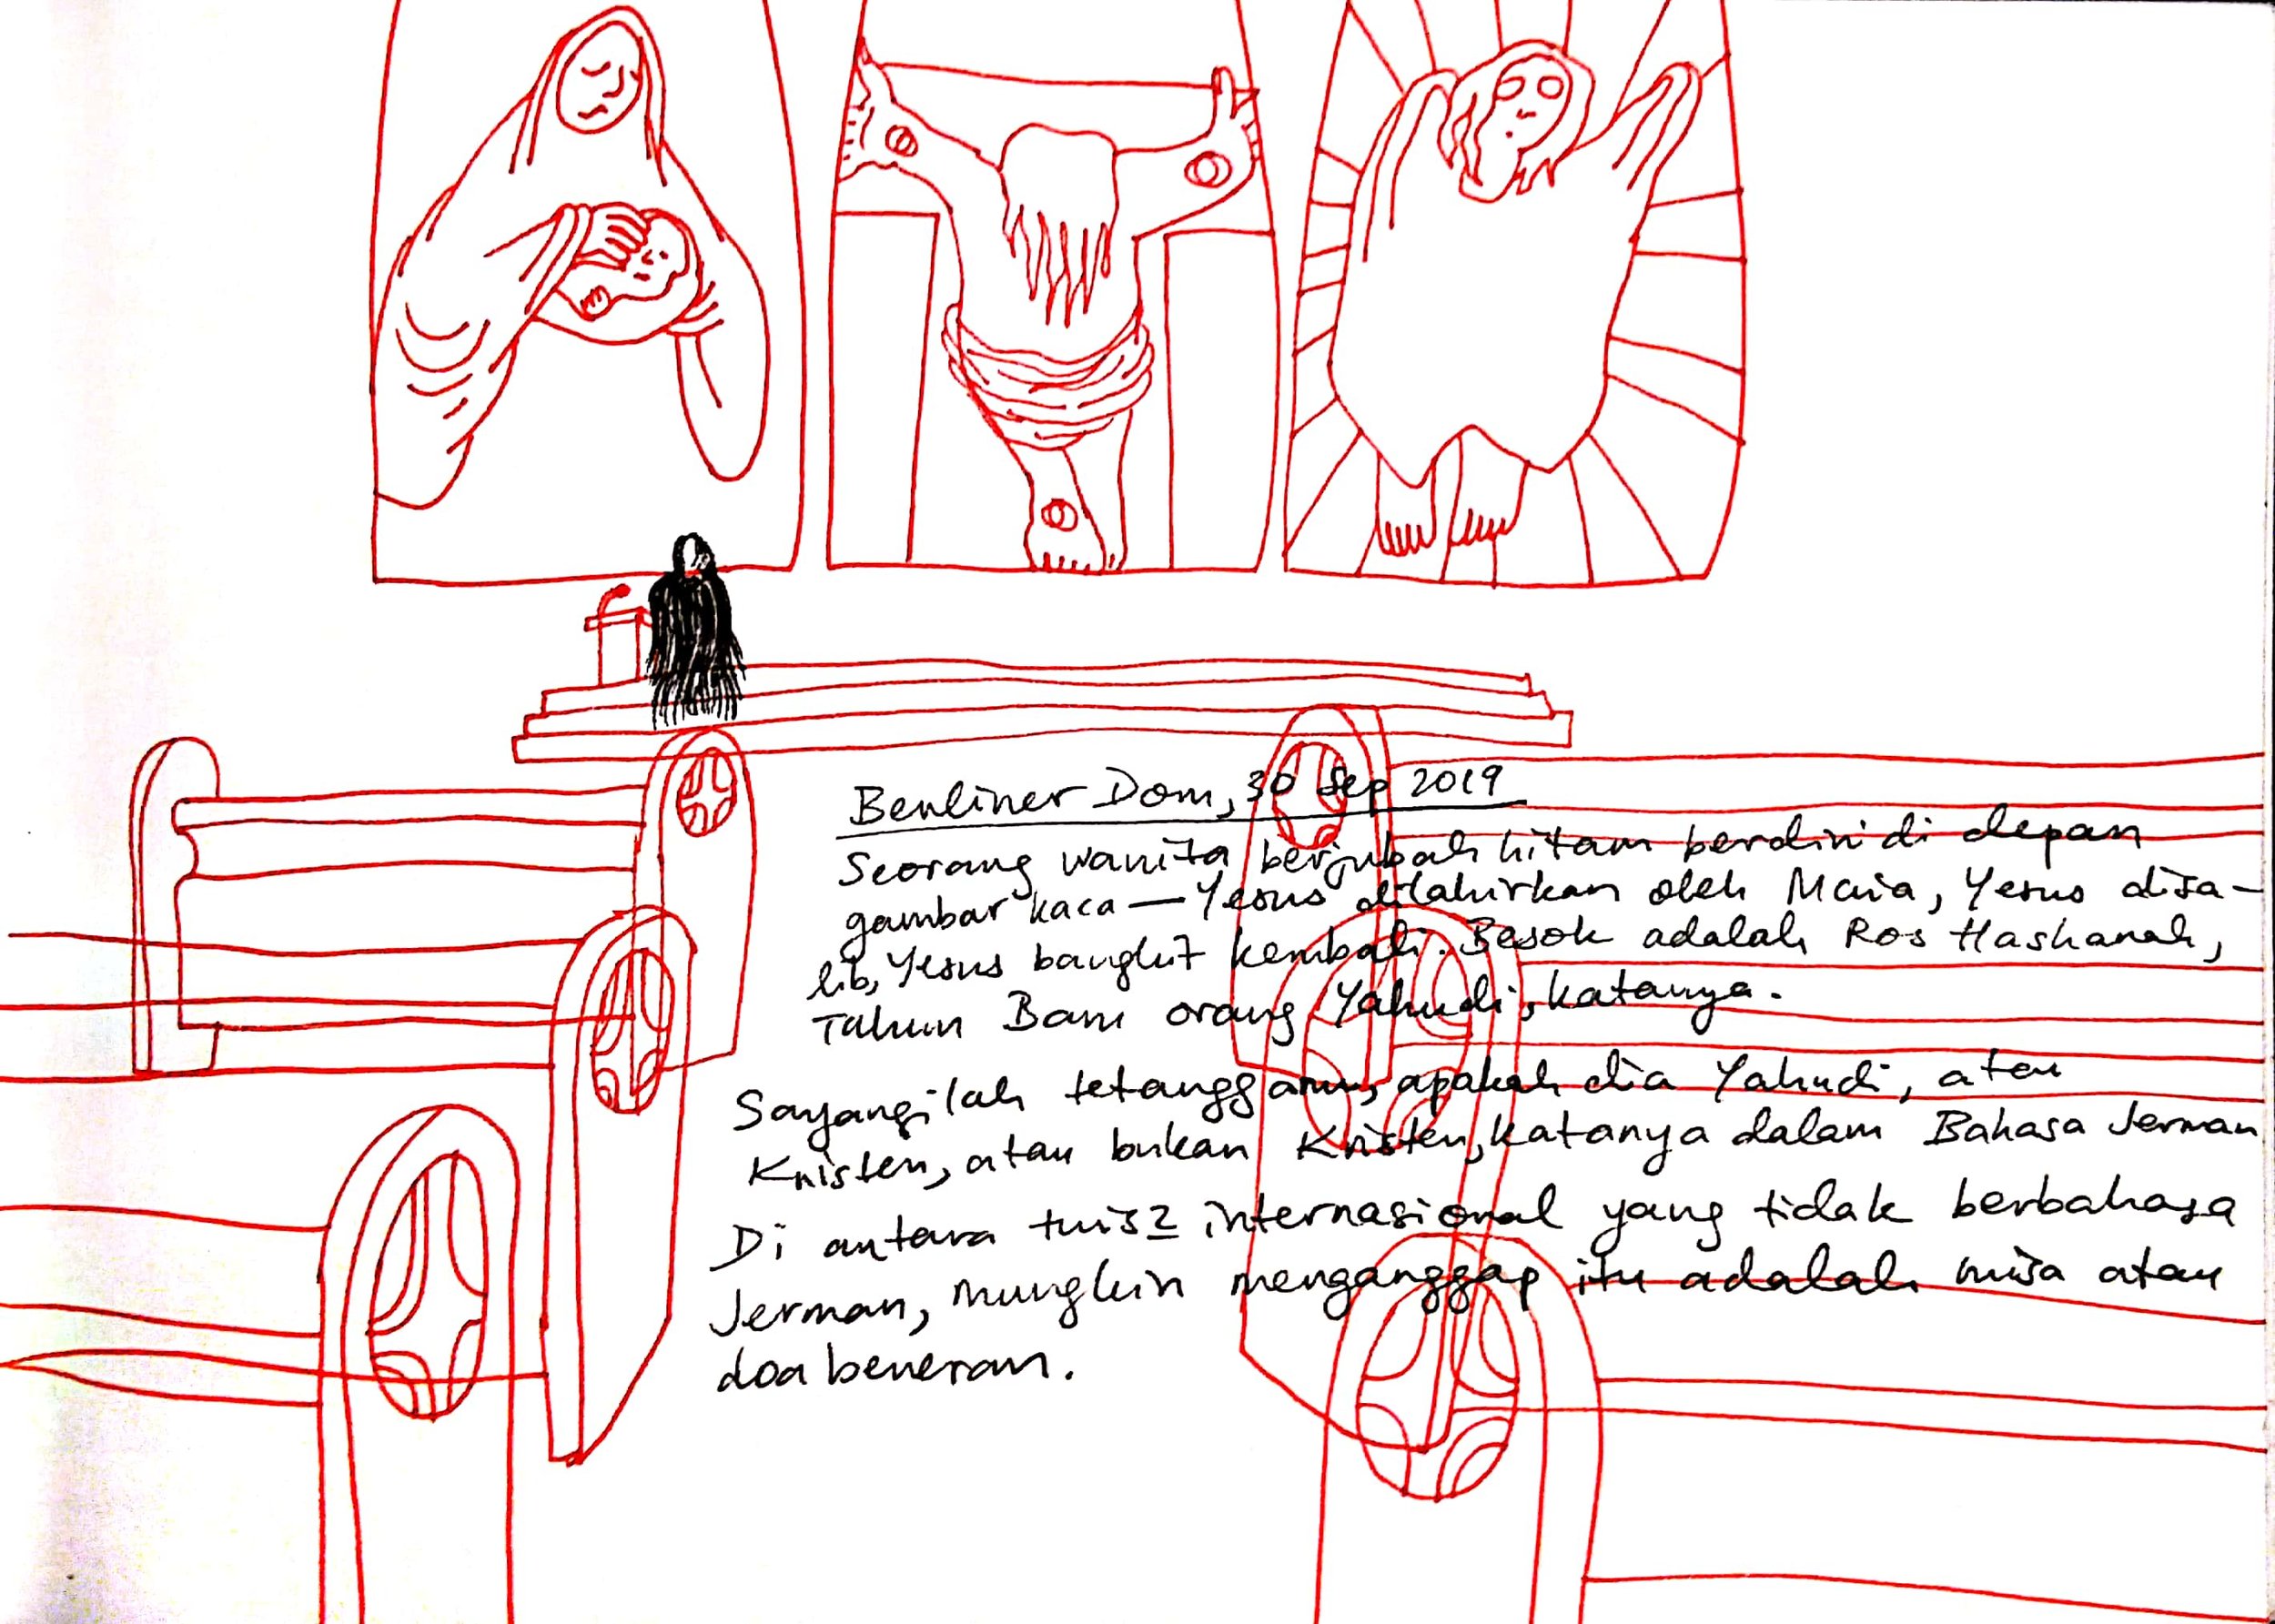 Berliner Dom, 30 Sep 2019
Seorang wanita berjubah hitam berdiri di depan
gambar kaca — Yesus dilahirkan oleh Maria, Yesus disa-
lib, Yesus bangkit kembali. Besok adalah Ros Hashanah,
Tahun Baru orang Yahudi, katanya.
Sayangilah tetanggamu, apakah dia Yahudi, atau
Kristen, atau bukan Kristen, katanya dalam Bahasa Jerman
Di antara turis2 internasional yang tidak berbahasa
Jerman, mungkin menganggap itu adalah misa atau
doa beneran.